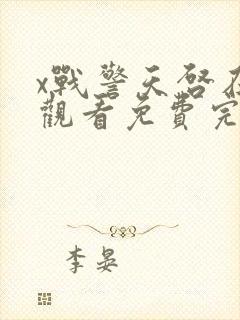 x戰警天啓在
觀看免費完
李晏